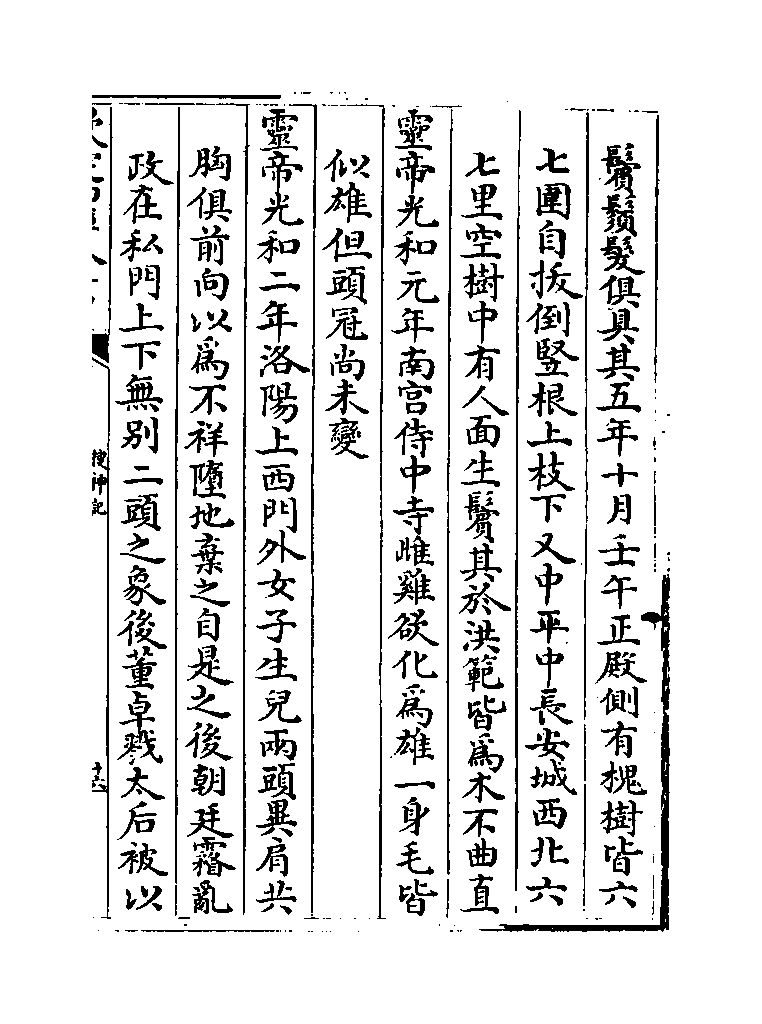 鬢鬚髮俱具其五年十月壬午正殿側有槐樹皆六
七圍自拔倒豎根上枝下又中平中長安城西北六
七里空樹中有人面生鬢其於洪範皆為木不曲直
靈帝光和元年南宫侍中寺雌雞欲化為雄一身毛皆
似雄但頭冠尚未變
靈帝光和二年洛陽上西門外女子生兒兩頭異肩共
胸俱前向以為不祥墮地棄之自是之後朝廷霿亂
政在私門上下無别二頭之象後董卓戮太后被以
搜神記